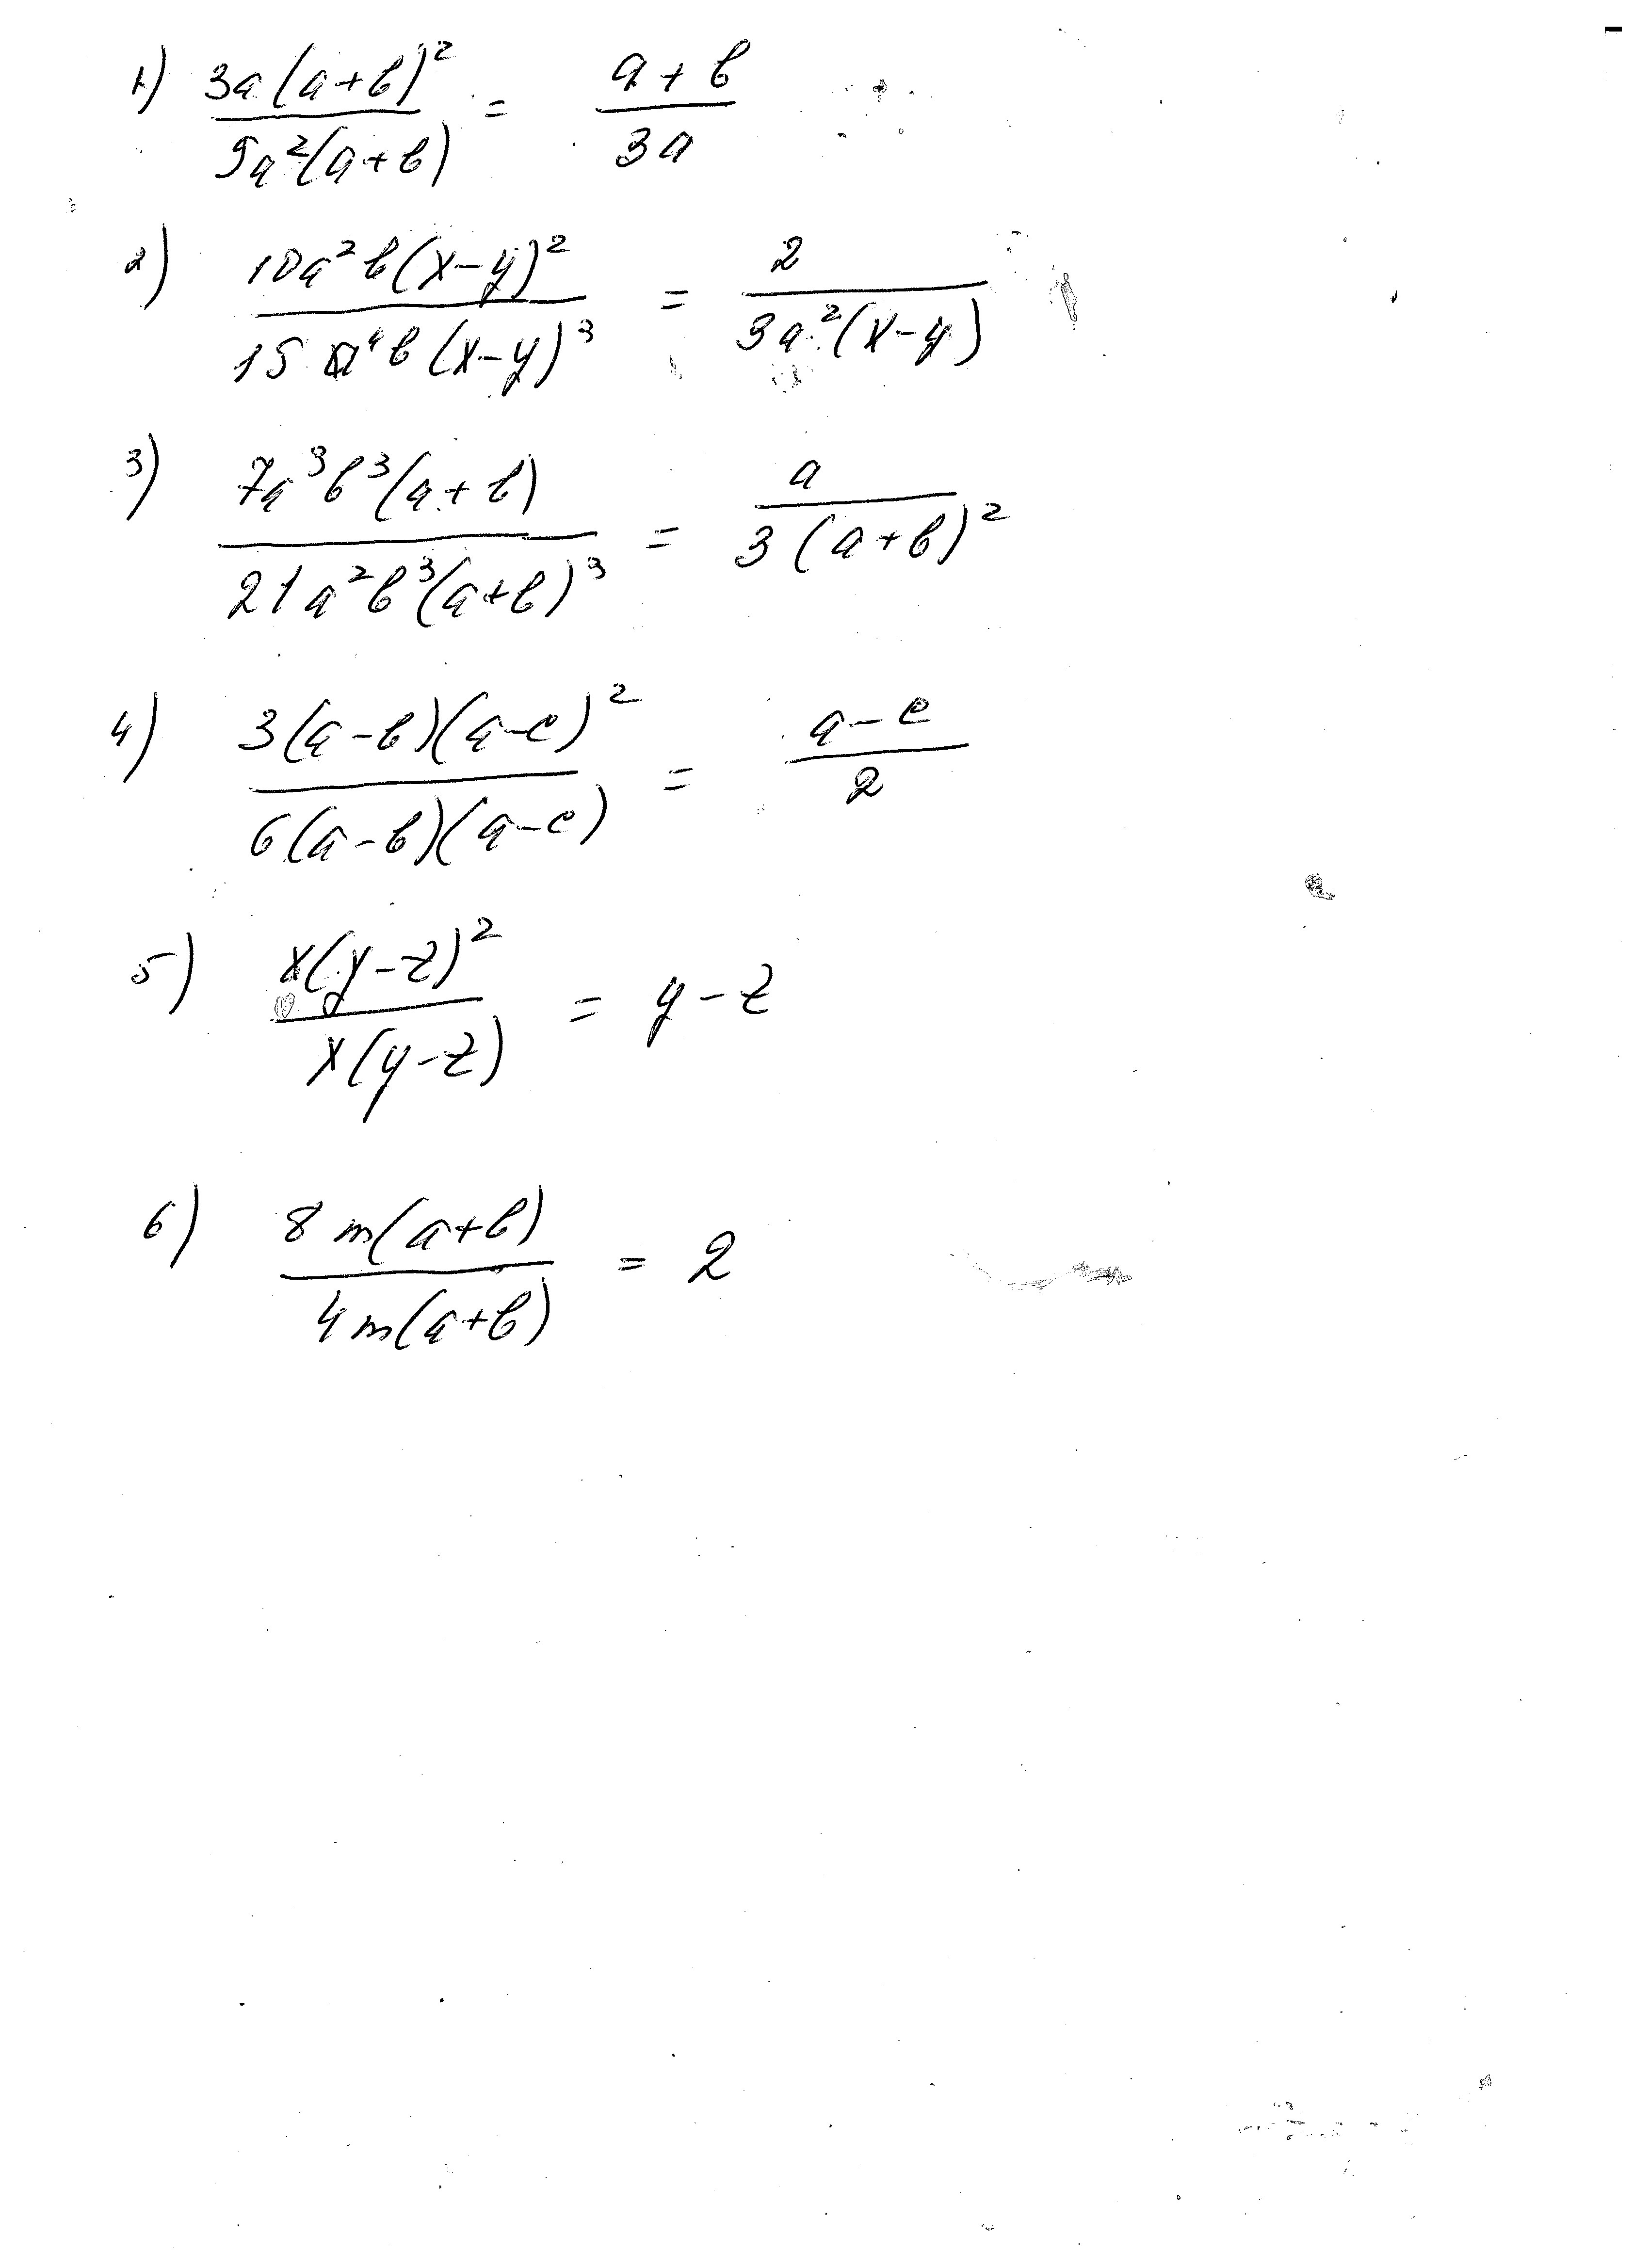 1) 3a(a+b)² / 9a²(a+b) = a+b / 3a
2) 10a²b(x-y)² / 15a⁴b(x-y)³ = 2 / 3a²(x-y)
3) 7a³b³(a+b) / 21a²b³(a+b)³ = a / 3(a+b)²
4) 3(a-b)(a-c)² / 6(a-b)(a-c) = a-c / 2
5) x(y-z)² / x(y-z) = y-z
6) 8m(a+b) / 4m(a+b) = 2